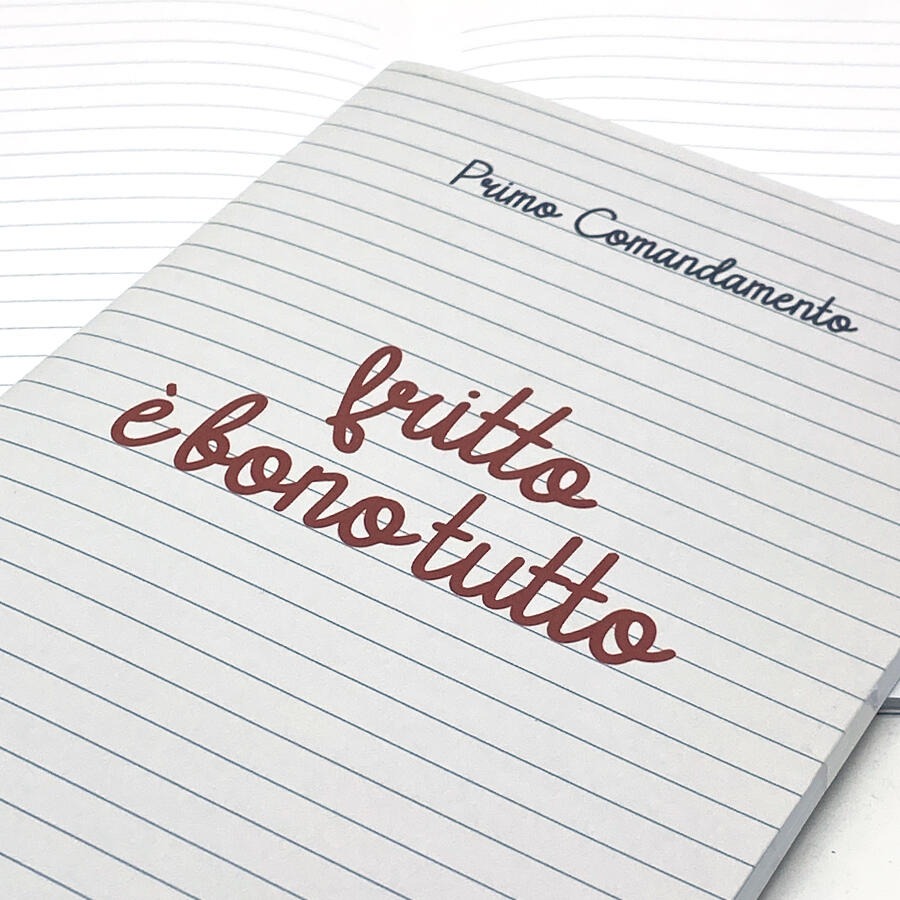 Primo Comandamento
fritto
è bono tutto